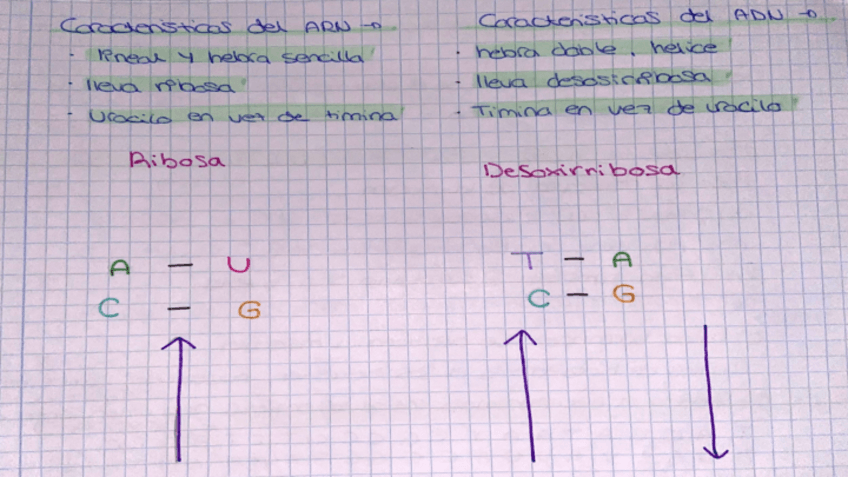 Características del ARN →
· lineal y hebra sencilla
· lleva ribosa
· Uracilo en vez de timina
Ribosa
A — U
C — G
Características del ADN →
· hebra doble, hélice
· lleva desoxirribosa
· Timina en vez de uracilo
Desoxirribosa
T — A
C — G